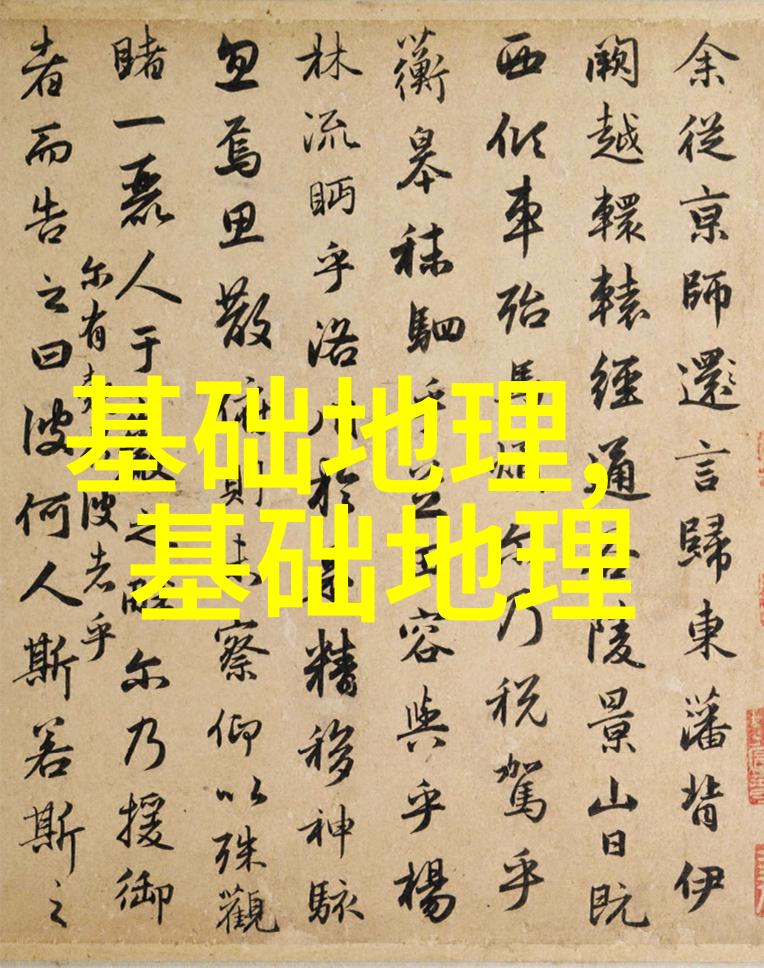 余從京師還言歸東藩背伊
闕越轘轅經通谷陵景山日既
西傾車殆馬煩尔乃税駕乎
蘅皋秣駟乎芝田容與乎楊
林流眄乎洛川於是精移神駭
忽焉思散俯則未察仰以殊觀
睹一麗人于巖之畔尔乃援御
者而告之曰彼何人斯若斯之
尔有覿於彼者乎
基础地理,
基础地理